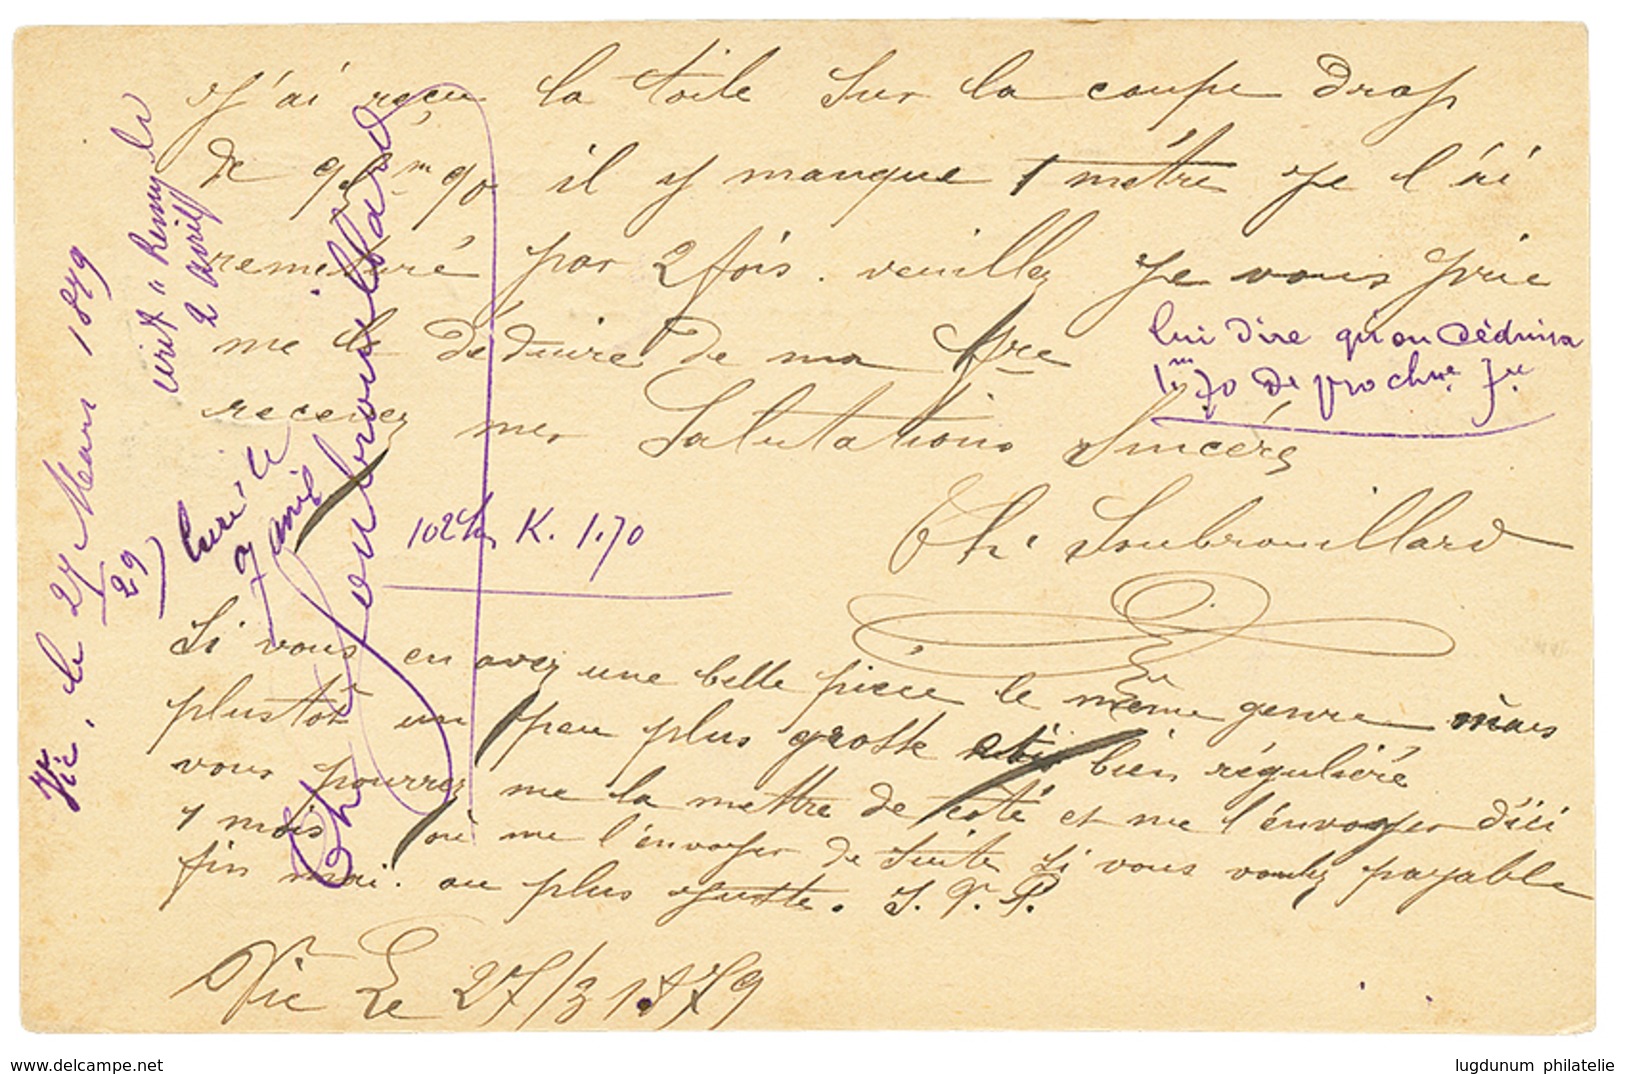 J'ai reçu la toile sur la coupe drap
de 95 m 90 il y manque 1 mètre je l'ai
remesuré par 2 fois. veuillez je vous prie
me le déduire de ma fre
recevez mes Salutations Sincères
Ch. Soubrouillard
Si vous en avez une belle pièce le même genre mais
plustôt un peu plus grosse bien régulière
vous pourrez me la mettre de coté et me l'envoyer d'ici
1 mois ou me l'envoyer de suite si vous voulez payable
fin mai. ou plus juste. S.V.P.
Vic Le 27/3 1879
lui dire qu'on déduira
1m 70 de prochne fre
K. 1.70
Vic, le 27 Mars 1879
29
écrit a Remy le
2 avril
livré le
7 avril
Ch. Soubrouillard
www.delcampe.net
lugdunum philatelie